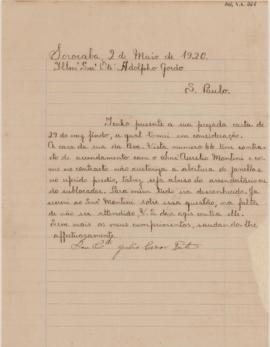 Sorocaba, 2 de Maio de 1920.
Illmo Snr. Dr. Adolpho Gordo
S. Paulo.
Tenho presente a sua prezada carta de
29 do mez findo, a qual tomei em consideração.
A casa da rua da Boa Vista, numero 66 tem contra-
cto de arrendamento com o snr Aurelio Montini e co-
mo no contracto não autoriza a abertura de janellas
no referido predio, talvez seja abuso do arrendatario ou
do sublocador. Para mim tudo isso desconhecido. Ja
escrevi ao Snr. Montini sobre essa questão, na falta
de não ser attendido V. S. deve agir contra elle.
Sem mais os meus cumprimentos, saudando-lhe
affectuosamente.
Julio Cesar